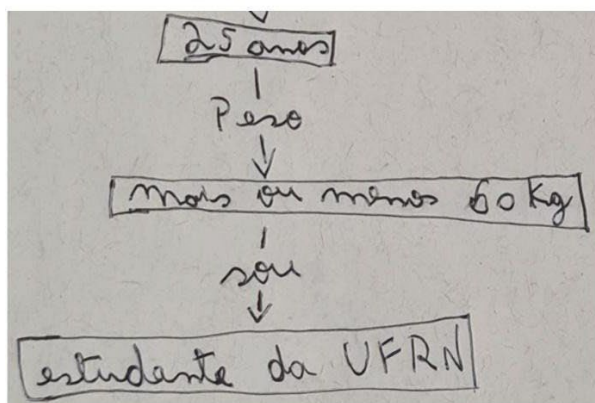 25 anos
Peso
mais ou menos 60 Kg
sou
estudante da UFRN